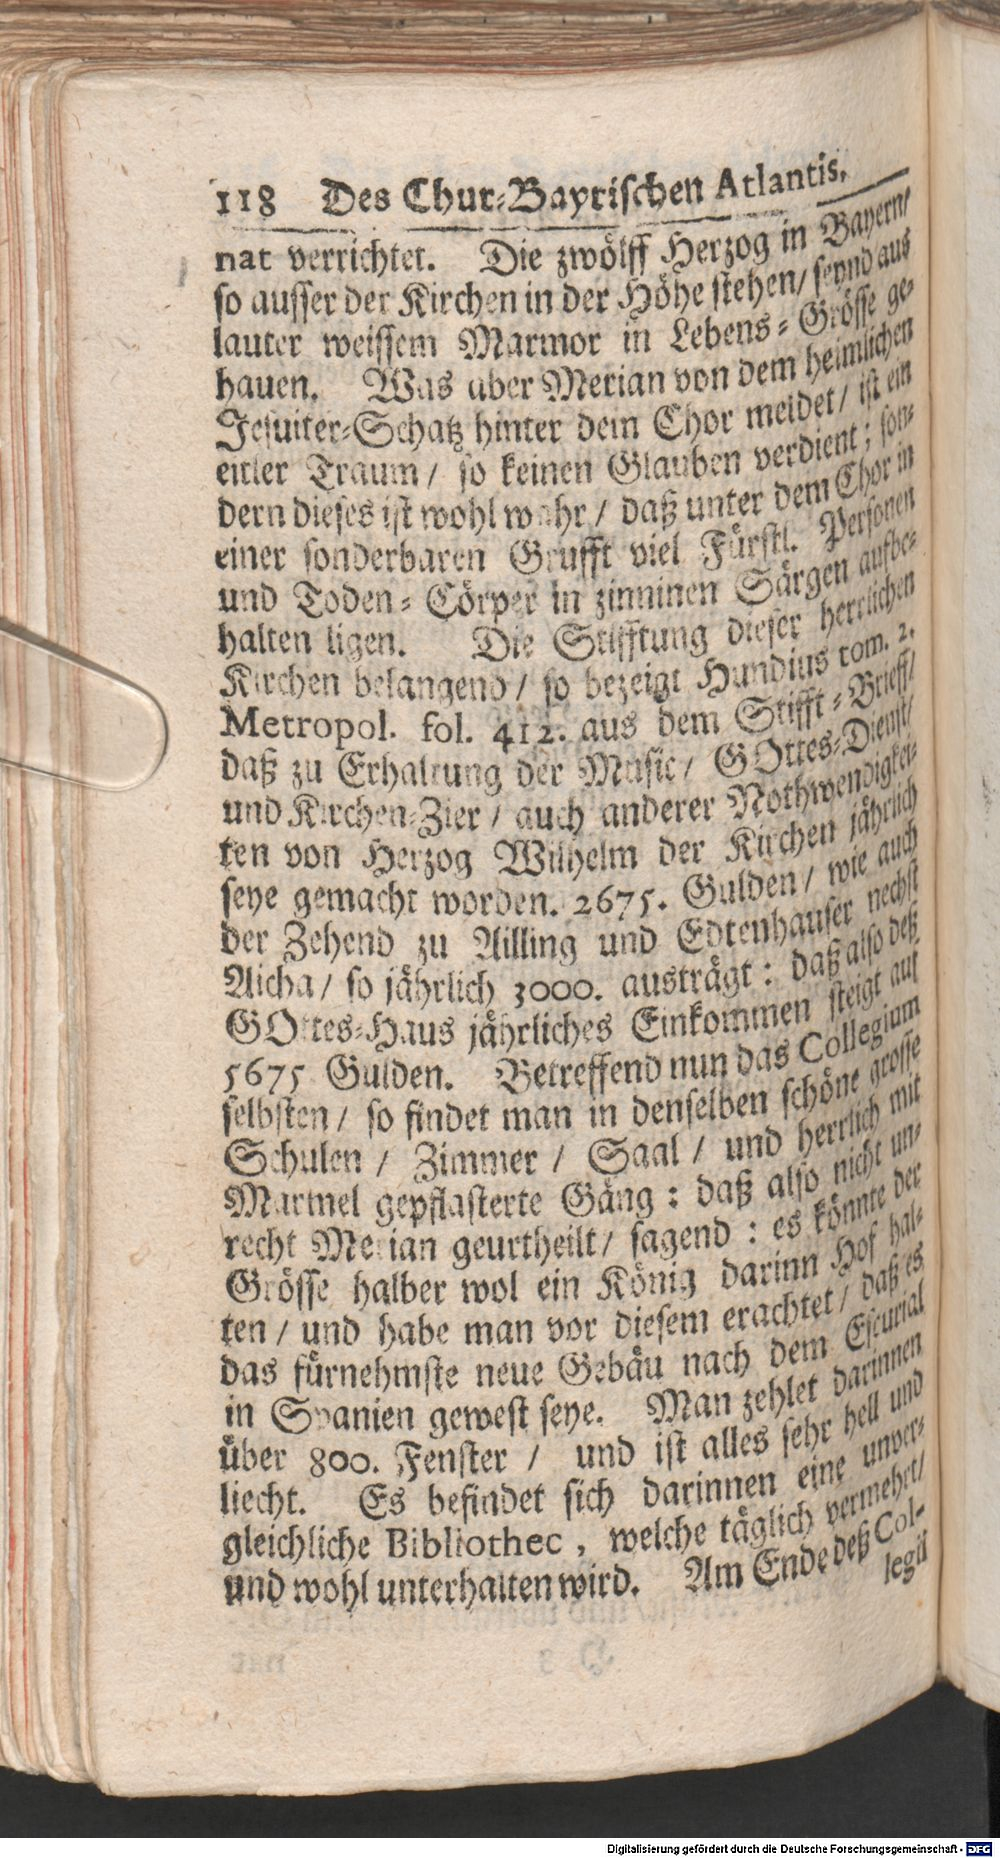 118 Des Chur-Bayrischen Atlantis,
nat verrichtet. Die zwölff Herzog in Bayern/
so ausser der Kirchen in der Höhe stehen/ seynd aus
lauter weissem Marmor in Lebens-Grösse ge-
hauen. Was aber Merian von dem heimlichen
Jesuiter-Schatz hinter dem Chor meldet/ ist ein
eitler Traum/ so keinen Glauben verdient; son-
dern dieses ist wohl wahr/ daß unter dem Chor in
einer sonderbaren Grufft viel Fürstl. Personen
und Toden-Cörper in zinninen Särgen aufbe-
halten ligen. Die Stifftung dieser herrlichen
Kirchen belangend/ so bezeigt Hundius tom. 2.
Metropol. fol. 412. aus dem Stifft-Brieff/
daß zu Erhaltung der Music/ GOttes-Dienst/
und Kirchen-Zier/ auch anderer Nothwendigkei-
ten von Herzog Wilhelm der Kirchen jährlich
seye gemacht worden. 2675. Gulden/ wie auch
der Zehend zu Ailling und Edtenhauser nechst
Aicha/ so jährlich 3000. austrägt: daß also deß
GOttes-Haus jährliches Einkommen steigt auf
5675 Gulden. Betreffend nun das Collegium
selbsten/ so findet man in denselben schöne grosse
Schulen/ Zimmer/ Saal/ und herrlich mit
Marmel gepflasterte Gäng: daß also nicht un-
recht Merian geurtheilt/ sagend: es könnte der
Grösse halber wol ein König darinn Hof hal-
ten/ und habe man vor diesem erachtet/ daß es
das fürnehmste neue Gebäu nach dem Escurial
in Spanien gewest seye. Man zehlet darinnen
über 800. Fenster/ und ist alles sehr hell und
liecht. Es befindet sich darinnen eine unver-
gleichliche Bibliothec, welche täglich vermehrt/
und wohl unterhalten wird. Am Ende deß Col-
legii
Digitalisierung gefördert durch die Deutsche Forschungsgemeinschaft - DFG